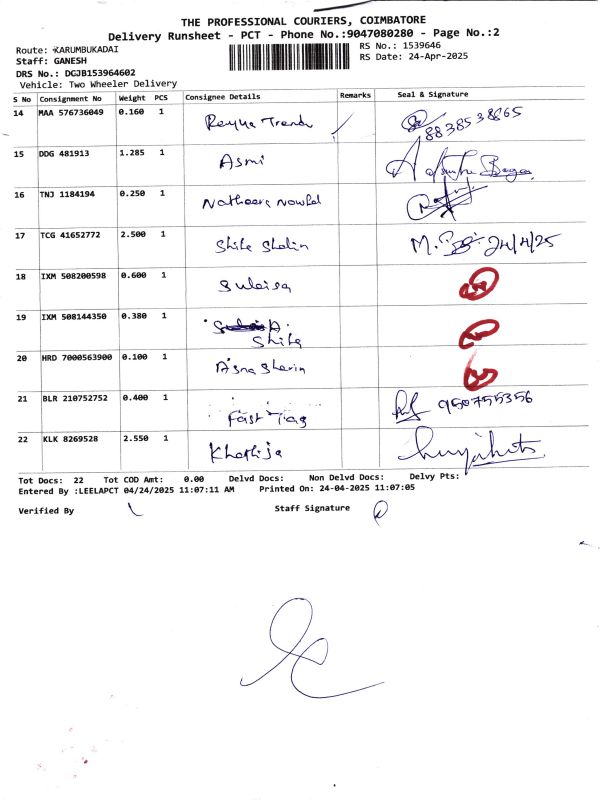 THE PROFESSIONAL COURIERS, COIMBATORE
Delivery Runsheet - PCT - Phone No.:9047080280 - Page No.:2
Route: KARUMBUKADAI
RS No.: 1539646
Staff: GANESH
RS Date: 24-Apr-2025
DRS No.: DCJB153964602
Vehicle: Two Wheeler Delivery
S No Consignment No Weight PCS Consignee Details Remarks Seal & Signature
14 MAA 576736049 0.160 1
15 DDG 481913 1.285 1 Asmi
16 TNJ 1184194 0.250 1
17 TCG 41652772 2.500 1 Shifa Shalin 24/4/25
18 IXM 508200598 0.600 1 Sulaisa
19 IXM 508144350 0.380 1 Shifa
20 HRD 7000563900 0.100 1 Asna Sherin
21 BLR 210752752 0.400 1 Fast Tag 950755356
22 KLK 8269528 2.550 1 Khathija
Tot Docs: 22 Tot COD Amt: 0.00 Delvd Docs: Non Delvd Docs: Delvy Pts:
Entered By :LEELAPCT 04/24/2025 11:07:11 AM Printed On: 24-04-2025 11:07:05
Verified By Staff Signature